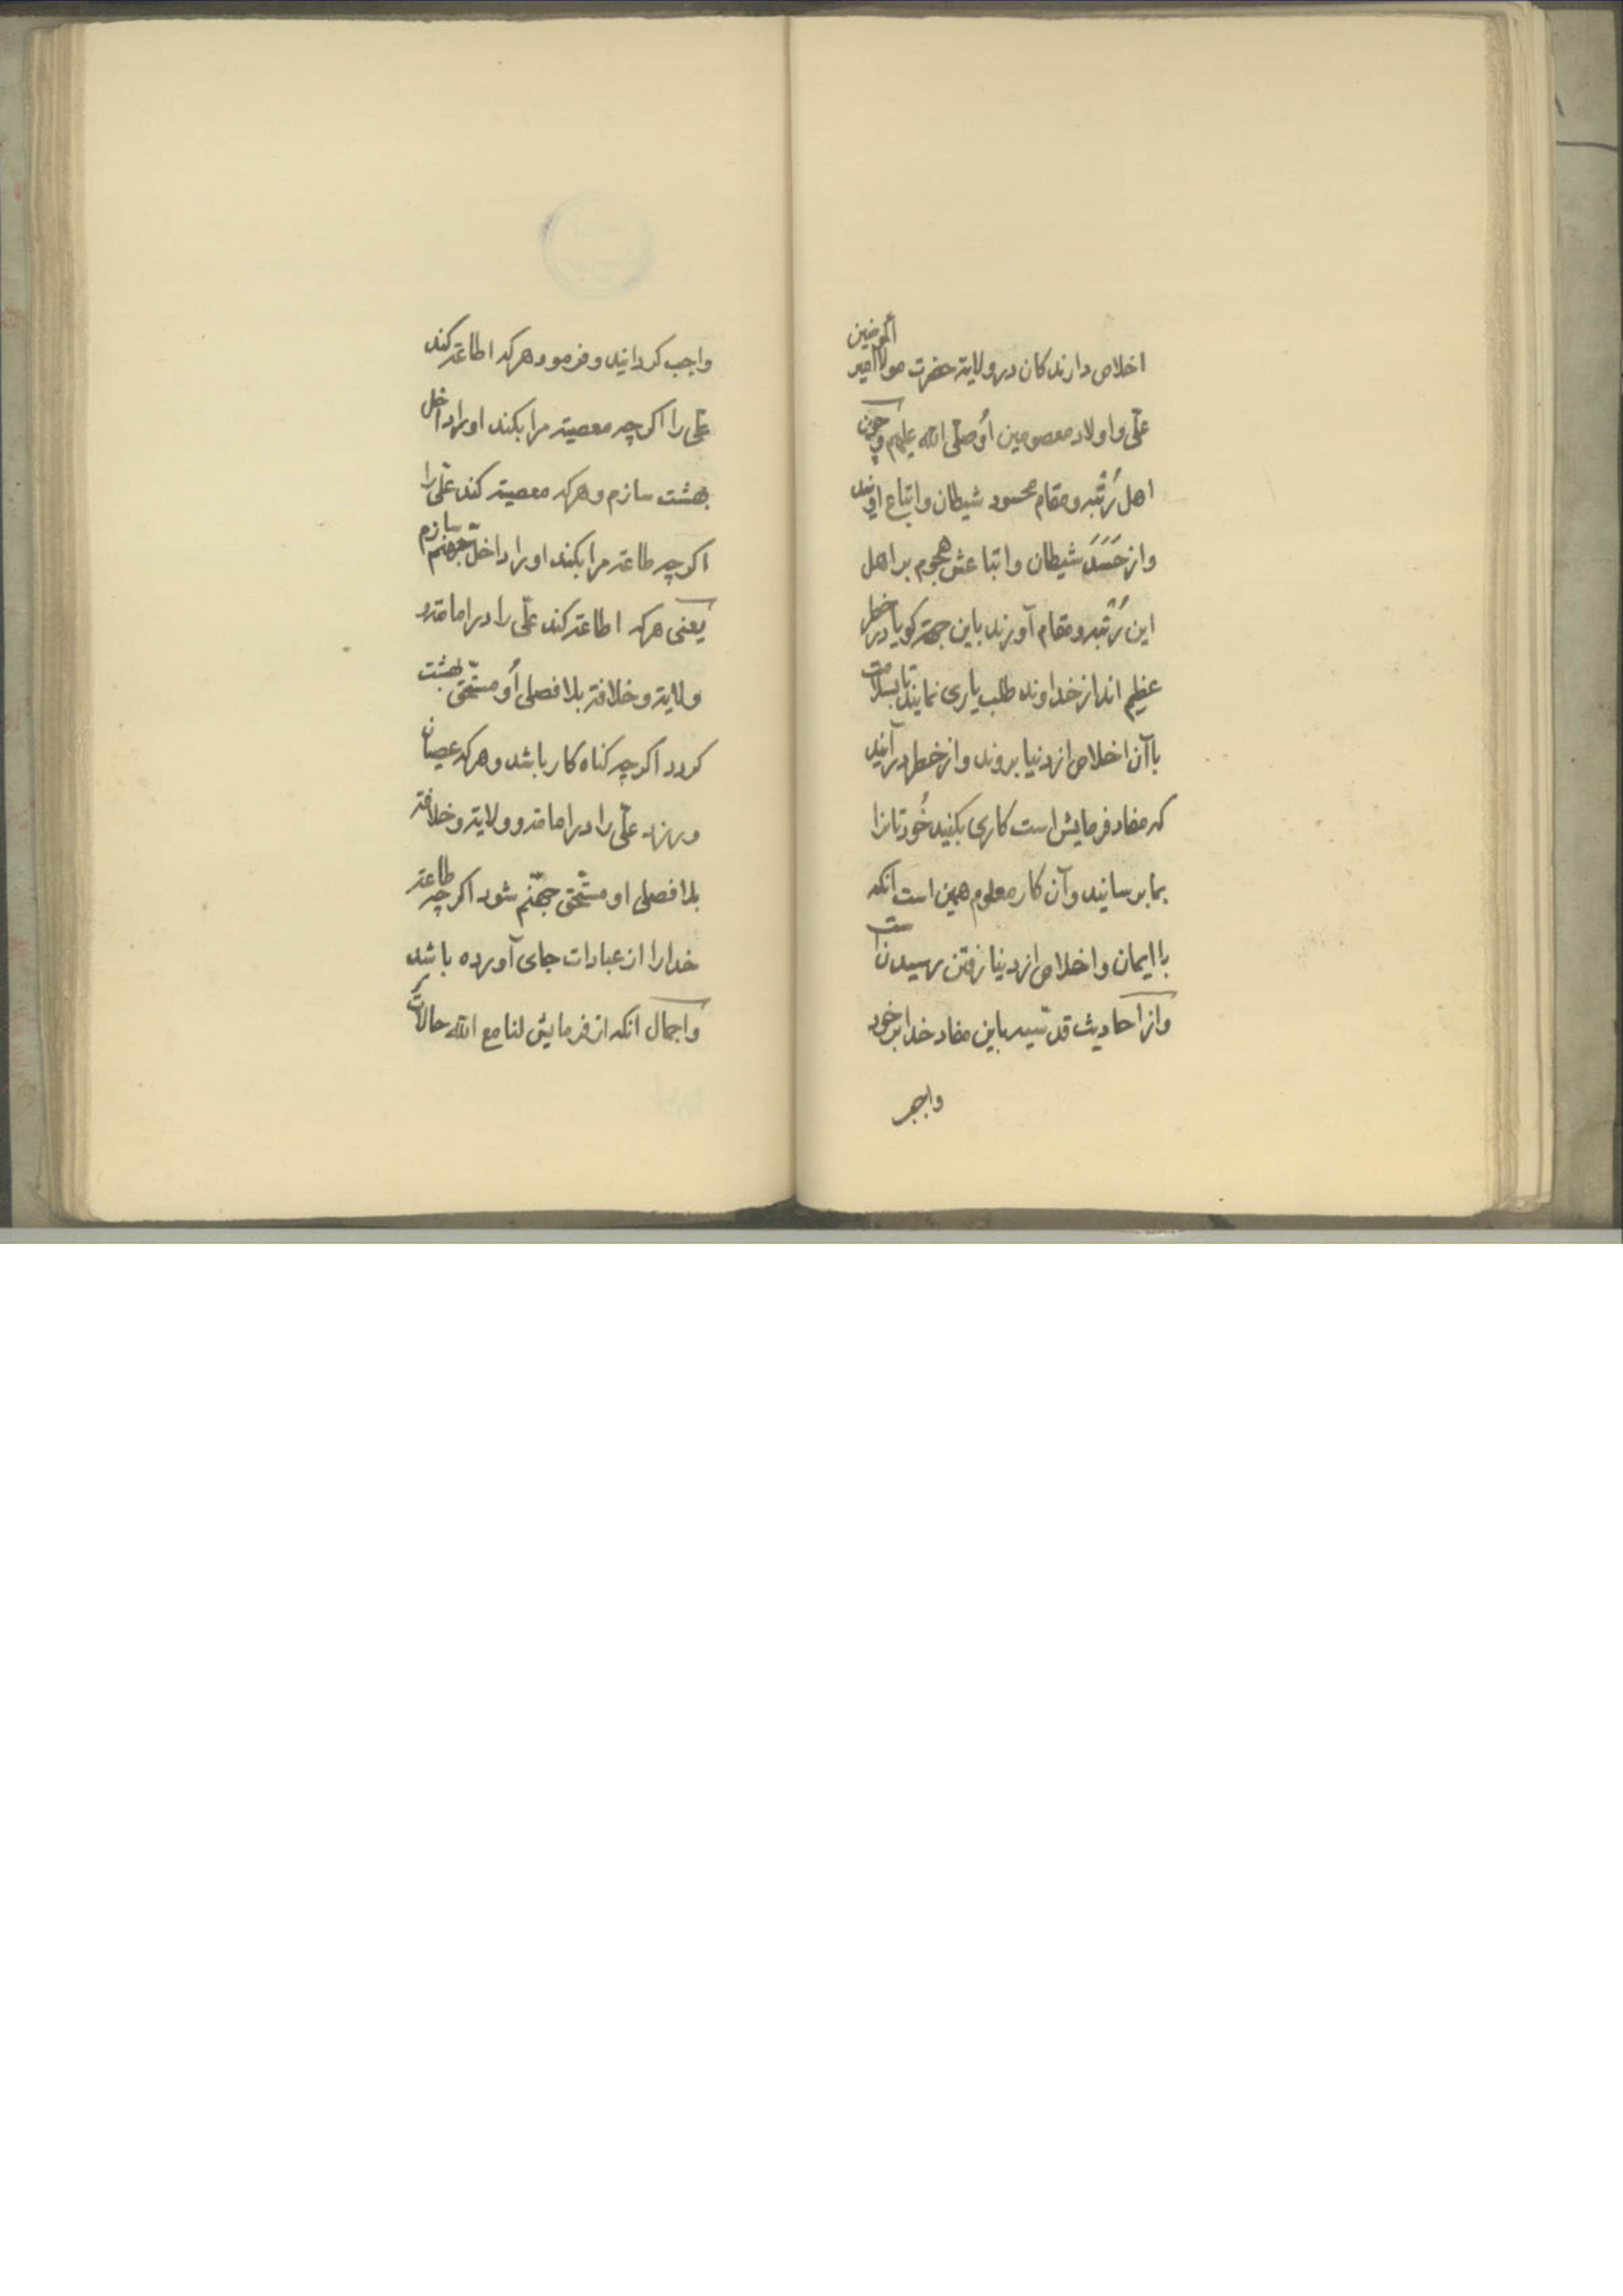 اخلاص دارندکان در ولایة حضرت مولا امیر المؤمنین
علّی و اولاد معصومین اُو صلّی الله علیهم و چون
اهل رُتبه و مقام محسود شیطان و اتباع اویند
و از حَسَدَ شیطان و اتباعش هجوم بر اهل
این رُتبه و مقام آورند باین جهة کویا در خطر
عظیم اند از خداوند طلب یاری نمایند تا بسلامت
با آن اخلاص از دنیا بروند و از خطر در آیند
که مفاد فرمایش است کاری بکنید خُودتانرا
بما برسانید و آن کار معلوم همین است انکه
با ایمان و اخلاص از دنیا رفتن رسیدن است
و از احادیث قدسّیه باین مفاد خدا بر خود
واجب
واجب کردانید و فرمود هرکه اطاعة کند
علّی را اکرچه معصیة مرا بکند او را داخل
بهشت سازم و هرکه معصیة کند علّی را
اکرچه طاعة مرا بکند او را داخل جهّنم سازم
یعنی هرکه اطاعة کند علّی را در امامة و
ولایة و خلافة بلا فصلی اُو مستّحق بهشت
کردد اکرچه کناه کار باشد و هرکه عصیان
ورزد علّی را در امامة و ولایة و خلافة
بلا فصلی او مستّحق جهّنم شود اکرچه طاعة
خدا را از عبادات جای آورده باشد
و اجمال انکه از فرمایش لنا مع الله حالات